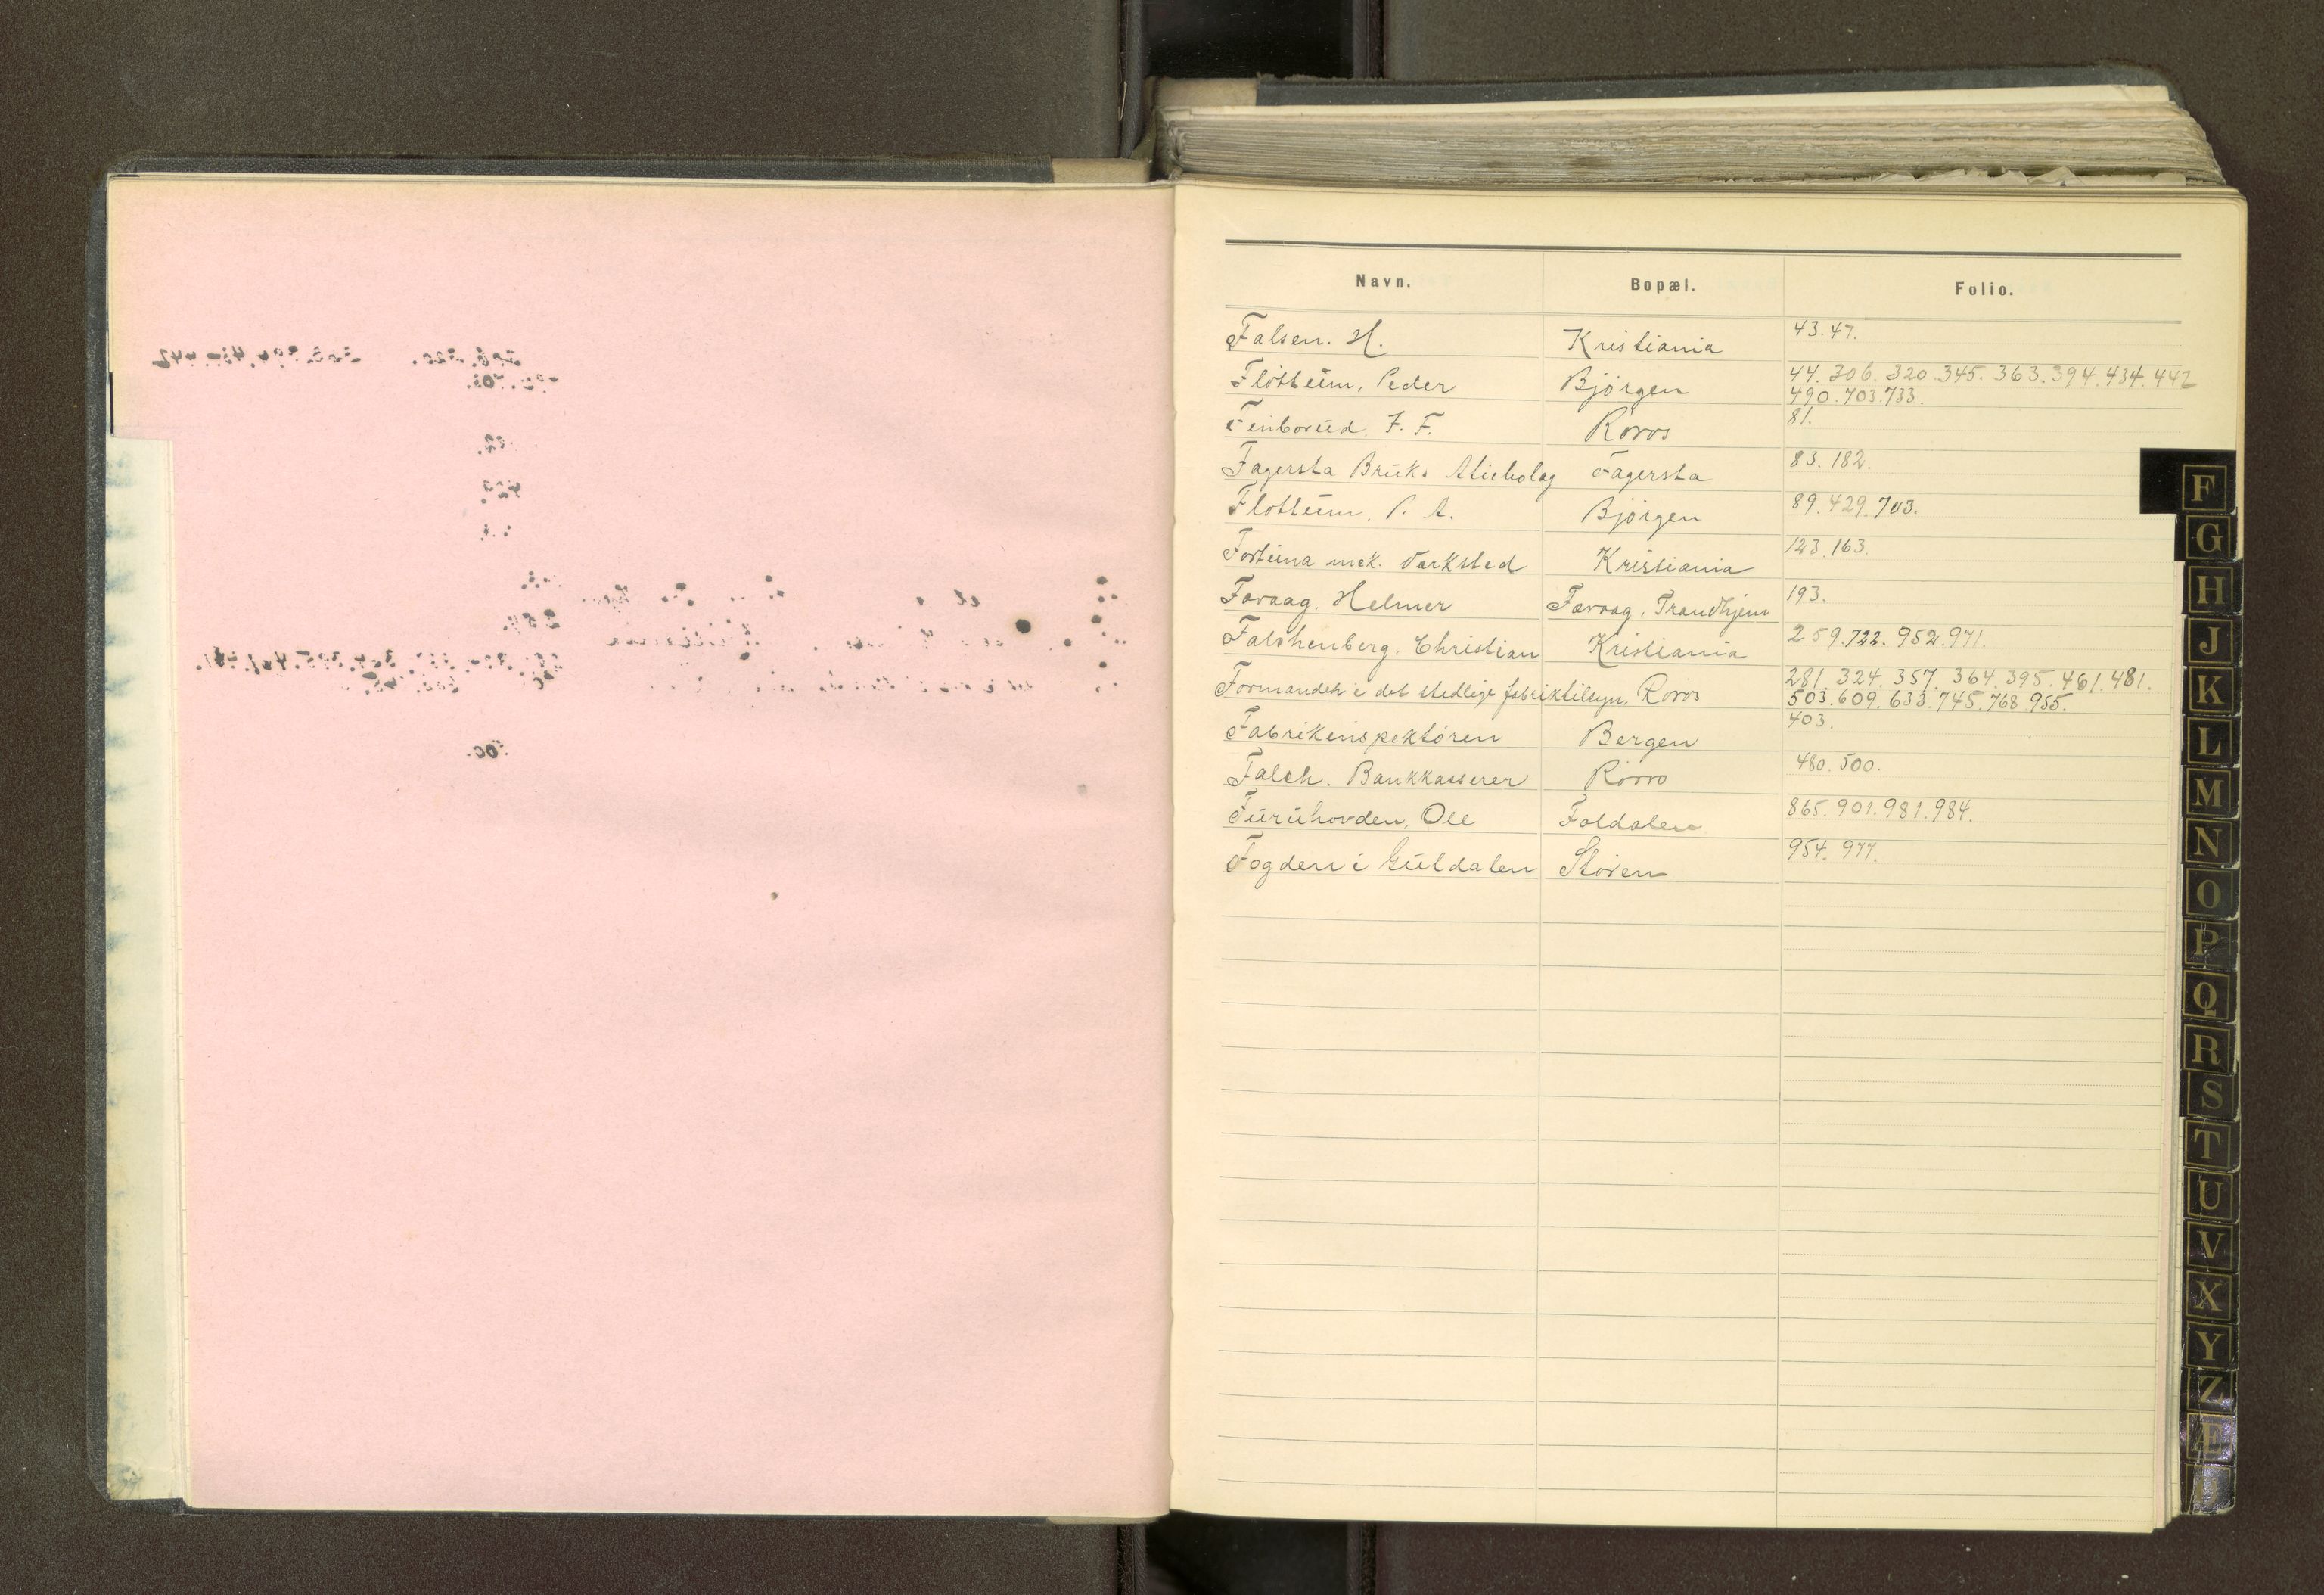 Navn. Bopæl. Folio.
Falsen. H. Kristiania 43.47.
Fløttum, Peder Bjørgen 44.306.320.345.363.394.434.442
490.703.733.
Finborud, F. F. Røros 81.
Fagersta Bruks Aktiebolag Fagersta 83.182.
Fløttum, P. A. Bjørgen 89.429.703.
Fortuna mek. Værksted Kristiania 123.163.
Foraag, Helmer Trondhjem 193.
Falkenberg, Christian Kristiania 259.722.952.971.
Formanden i det stedlige fabriktilsyn, Røros 281.324.357.364.395.461.481.
503.609.633.745.768.955.
Fabrikinspektøren Bergen 403.
Falch. Bankkasserer Røros 480.500.
Furuhovden, Ole Foldalen 865.901.981.984.
Fogden i Guldalen Støren 954.977.
F
G
H
J
K
L
M
N
O
P
Q
R
S
T
U
V
X
Y
Z
Æ